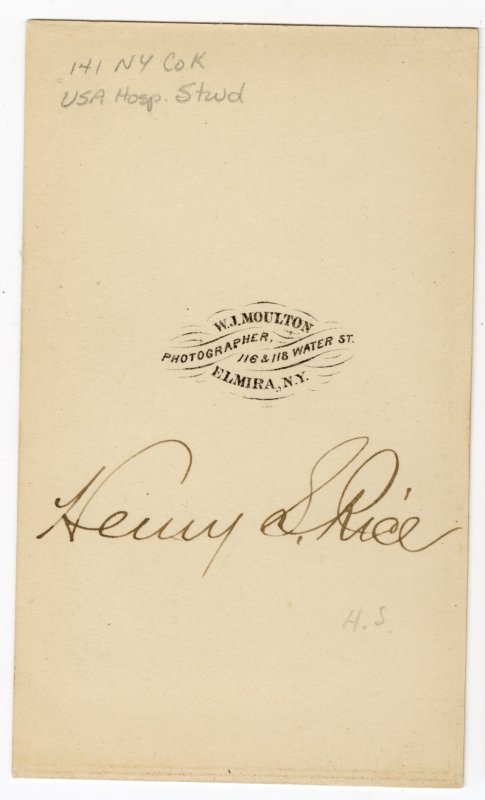 141 NY Co K
USA Hosp. Stwd
W.J. MOULTON
PHOTOGRAPHER,
116 & 118 WATER ST.
ELMIRA, N.Y.
Henry S. Rice
H.S.